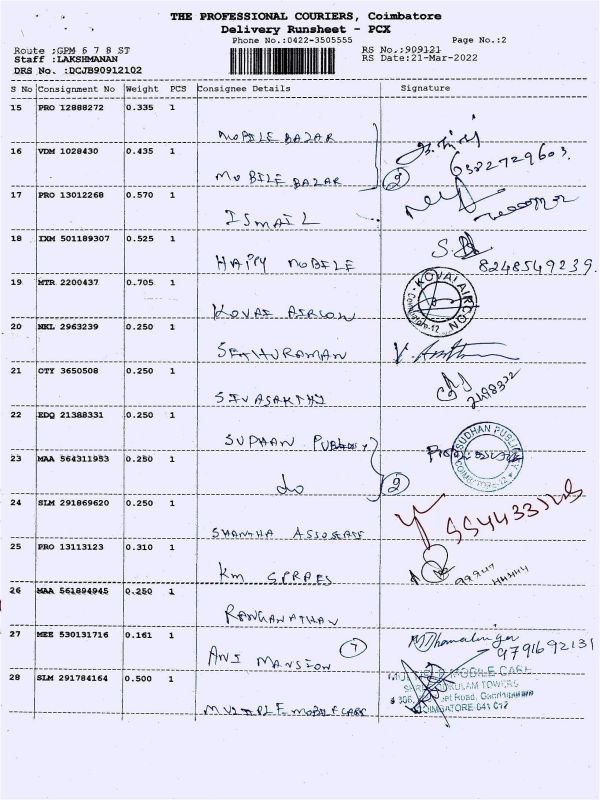 THE PROFESSIONAL COURIERS, Coimbatore
Delivery Runsheet - PCX
Phone No.:0422-3505555 Page No.:2
Route :GPM 6 7 8 ST RS No.:909121
Staff :LAKSHMANAN RS Date:21-Mar-2022
DRS No. :DCJB90912102
S No Consignment No Weight PCS Consignee Details Signature
15 PRO 12888272 0.335 1
MOBILE BAZAR
16 VDM 1028430 0.435 1
MOBILE BAZAR 2 6382729603.
17 PRO 13012268 0.570 1
ISMAIL
18 IXM 501189307 0.525 1
HAPPY MOBILE 8248549239.
19 MTR 2200437 0.705 1
KOVAI AIRCON KOVAI AIRCON
20 NKL 2963239 0.250 1
SETHURAMAN
21 CTY 3650508 0.250 1
SIVASAKTHI
22 EDQ 21388331 0.250 1
SUDHAN SUDHAN
23 MAA 564311953 0.250 1
do 2
24 SLM 291869620 0.250 1
SHANTHA
25 PRO 13113123 0.310 1
KM
26 MAA 561894945 0.250 1
RANGANATHAN
27 MEE 530131716 0.161 1
ANS MANSION 7 9791692131
28 SLM 291784164 0.500 1
MOBILE CARE
TOWERS
Road,
COIMBATORE 641 012
MULTIPLE MOBILE CARE